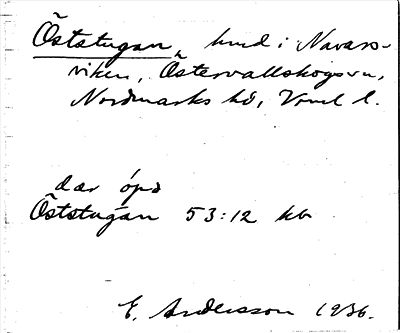 Öststugan, hmd i Navars-
viken, Östervallskogs sn,
Nordmarks hd, Vrml l.
dær
Öststugan 53:12 kb
E. Andersson 1936.